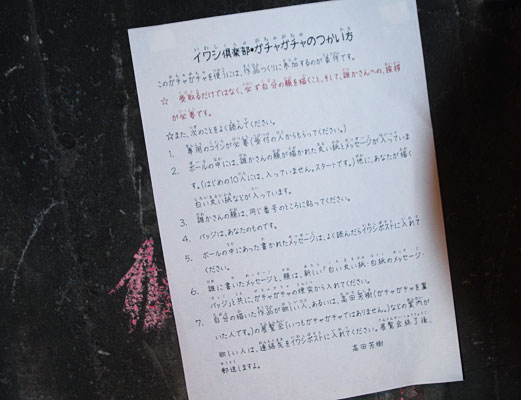 イワシ倶楽部●ガチャガチャのつかい方
このガチャガチャを使うには、作品つくりに参加するのが条件です。
☆ 受取るだけではなく、必ず自分の顔を描くこと、そして、誰かさんへの、挨拶
が必要です。
☆また、次のことをよく読んでください。
1. 専用のコインが必要(受付の人からもらってください。)
2. ボールの中には、誰かさんの顔が描かれた丸い紙とメッセージが入っていま
す。(はじめの10人には、入っていません。スタートです。)他に、あなたが描く
白い丸い紙などが入っています。
3. 誰かさんの顔は、同じ番号のところに貼ってください。
4. バッジは、あなたのものです。
5. ボールの中にあった書かれたメッセージは、よく読んだらイワシポストに入れて
ください。
6. 誰に書いたメッセージと、顔は、新しい「白い丸い紙・白紙のメッセージ・
バッジ」と共に、ガチャガチャの後ろから入れてください。
7. 自分の描いた作品が欲しい人、あるいは、高田芳樹(ガチャガチャを置
いた人です。)の展覧会(いつもガチャガチャではありません。)などの案内が
欲しい人は、連絡先をイワシポストに入れてください。展覧会終了後、
郵送しますよ。
高田芳樹